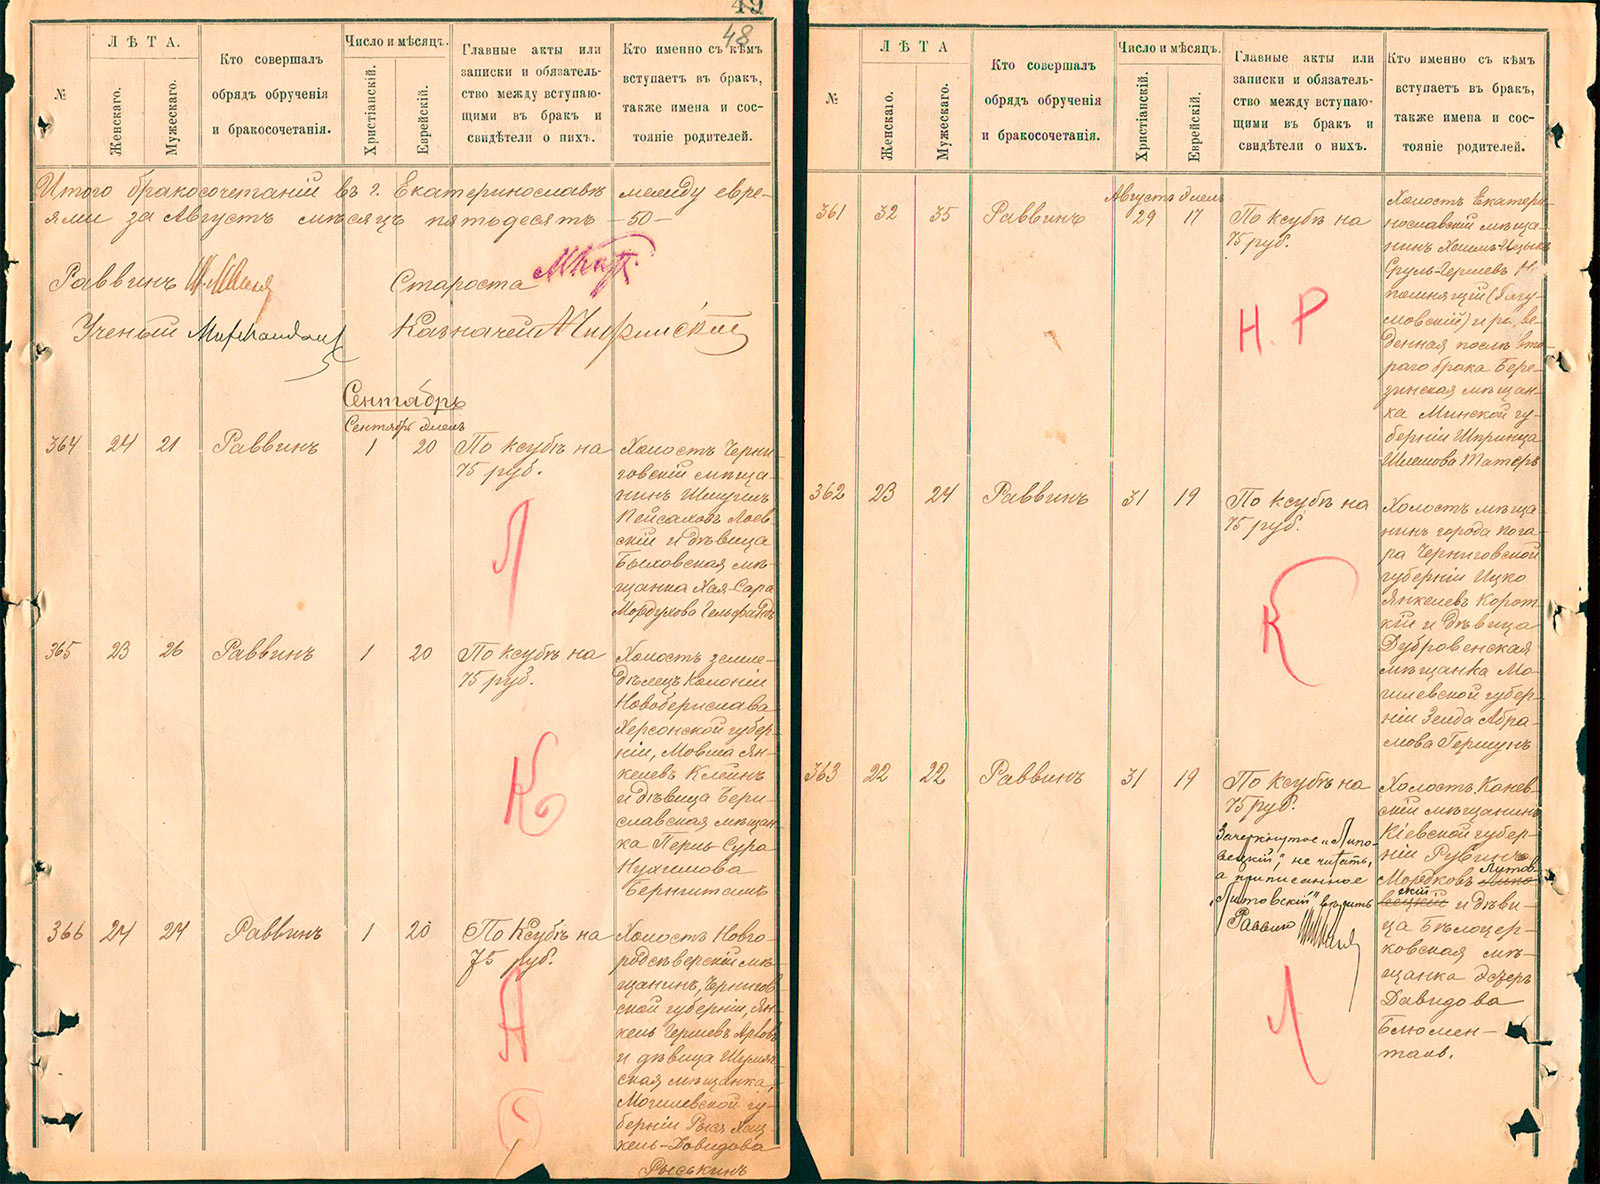 49
48
№
ЛѢТА.
Женскаго.
Мужескаго.
Кто совершалъ
обрядъ обрученія
и бракосочетанія.
Число и мѣсяцъ.
Христіанскій.
Еврейскій.
Главные акты или
записки и обязатель-
ство между вступаю-
щими въ бракъ и
свидѣтели о нихъ.
Кто именно съ кѣмъ
вступаетъ въ бракъ,
также имена и сос-
тояніе родителей.
Итого бракосочетаній въ г. Екатеринославѣ между евре-
ями за Августъ мѣсяцъ пятьдесятъ -50-
Раввинъ
Староста
Ученый
Казначей
Сентябрь
Сентябрь Элелъ
364 24 21 Раввинъ 1 20 По ксубѣ на
75 руб.
Холостъ Черни-
говскій мѣща-
нинъ Шмуилъ
Пейсаховъ Лоев-
скій и дѣвица
Быховская мѣ-
щанка Хая-Сара
Мордухова Гельфандъ
Л
365 23 26 Раввинъ 1 20 По ксубѣ на
75 руб.
Холостъ земле-
дѣлецъ Колоніи
Новоберислава
Херсонской губер-
ніи, Мовша Ян-
келевъ Клейнъ
и дѣвица Бери-
славская мѣщан-
ка Перль-Сура
Нухимова
Бернштамъ
К
366 24 24 Раввинъ 1 20 По Ксубѣ на
75 руб.
Холостъ Новго-
родсѣверскій мѣ-
щанинъ, Чернигов-
ской губерніи, Ян-
кель Гершевъ
и дѣвица
ская мѣщанка,
Могилевской гу-
берніи Рыся Хац-
кель-Довидова
Рыськинъ
А
№
ЛѢТА
Женскаго.
Мужескаго.
Кто совершалъ
обрядъ обрученія
и бракосочетанія.
Число и мѣсяцъ.
Христіанскій.
Еврейскій.
Главные акты или
записки и обязатель-
ство между вступаю-
щими въ бракъ и
свидѣтели о нихъ.
Кто именно съ кѣмъ
вступаетъ въ бракъ,
также имена и сос-
тояніе родителей.
Августъ Элелъ
361 32 35 Раввинъ 29 17 По ксубѣ на
75 руб.
Холостъ Екатери-
нославскій мѣща-
нинъ Хаимъ-Ицыкъ
Сруль-Гершевъ Не
помнящій
и разве-
денная послѣ вто-
раго брака Бере-
зинская мѣщан-
ка Минской гу-
берніи Шпринца
Шлемова
Н. Р
362 23 24 Раввинъ 31 19 По ксубѣ на
75 руб.
Холостъ мѣща-
нинъ города Пога-
ра Черниговской
губерніи Ицко
Янкелевъ Корот-
кій и дѣвица
Дубровенская
мѣщанка Мо-
гилевской губер-
ніи Зелда Абра-
мова Гершунъ
К
363 22 22 Раввинъ 31 19 По ксубѣ на
75 руб.
Зачеркнутое „Липо-
вецкій“, не читать,
а приписанное
„Литовскій“ вѣрить
Раввин
Холостъ Канев-
скій мѣщанинъ
Кіевской губер-
ніи Рувинъ
Мордковъ Литов-
скій
и дѣви-
ца Бѣлоцер-
ковская мѣ-
щанка Эстеръ
Давидова
Блюмен-
таль.
Л